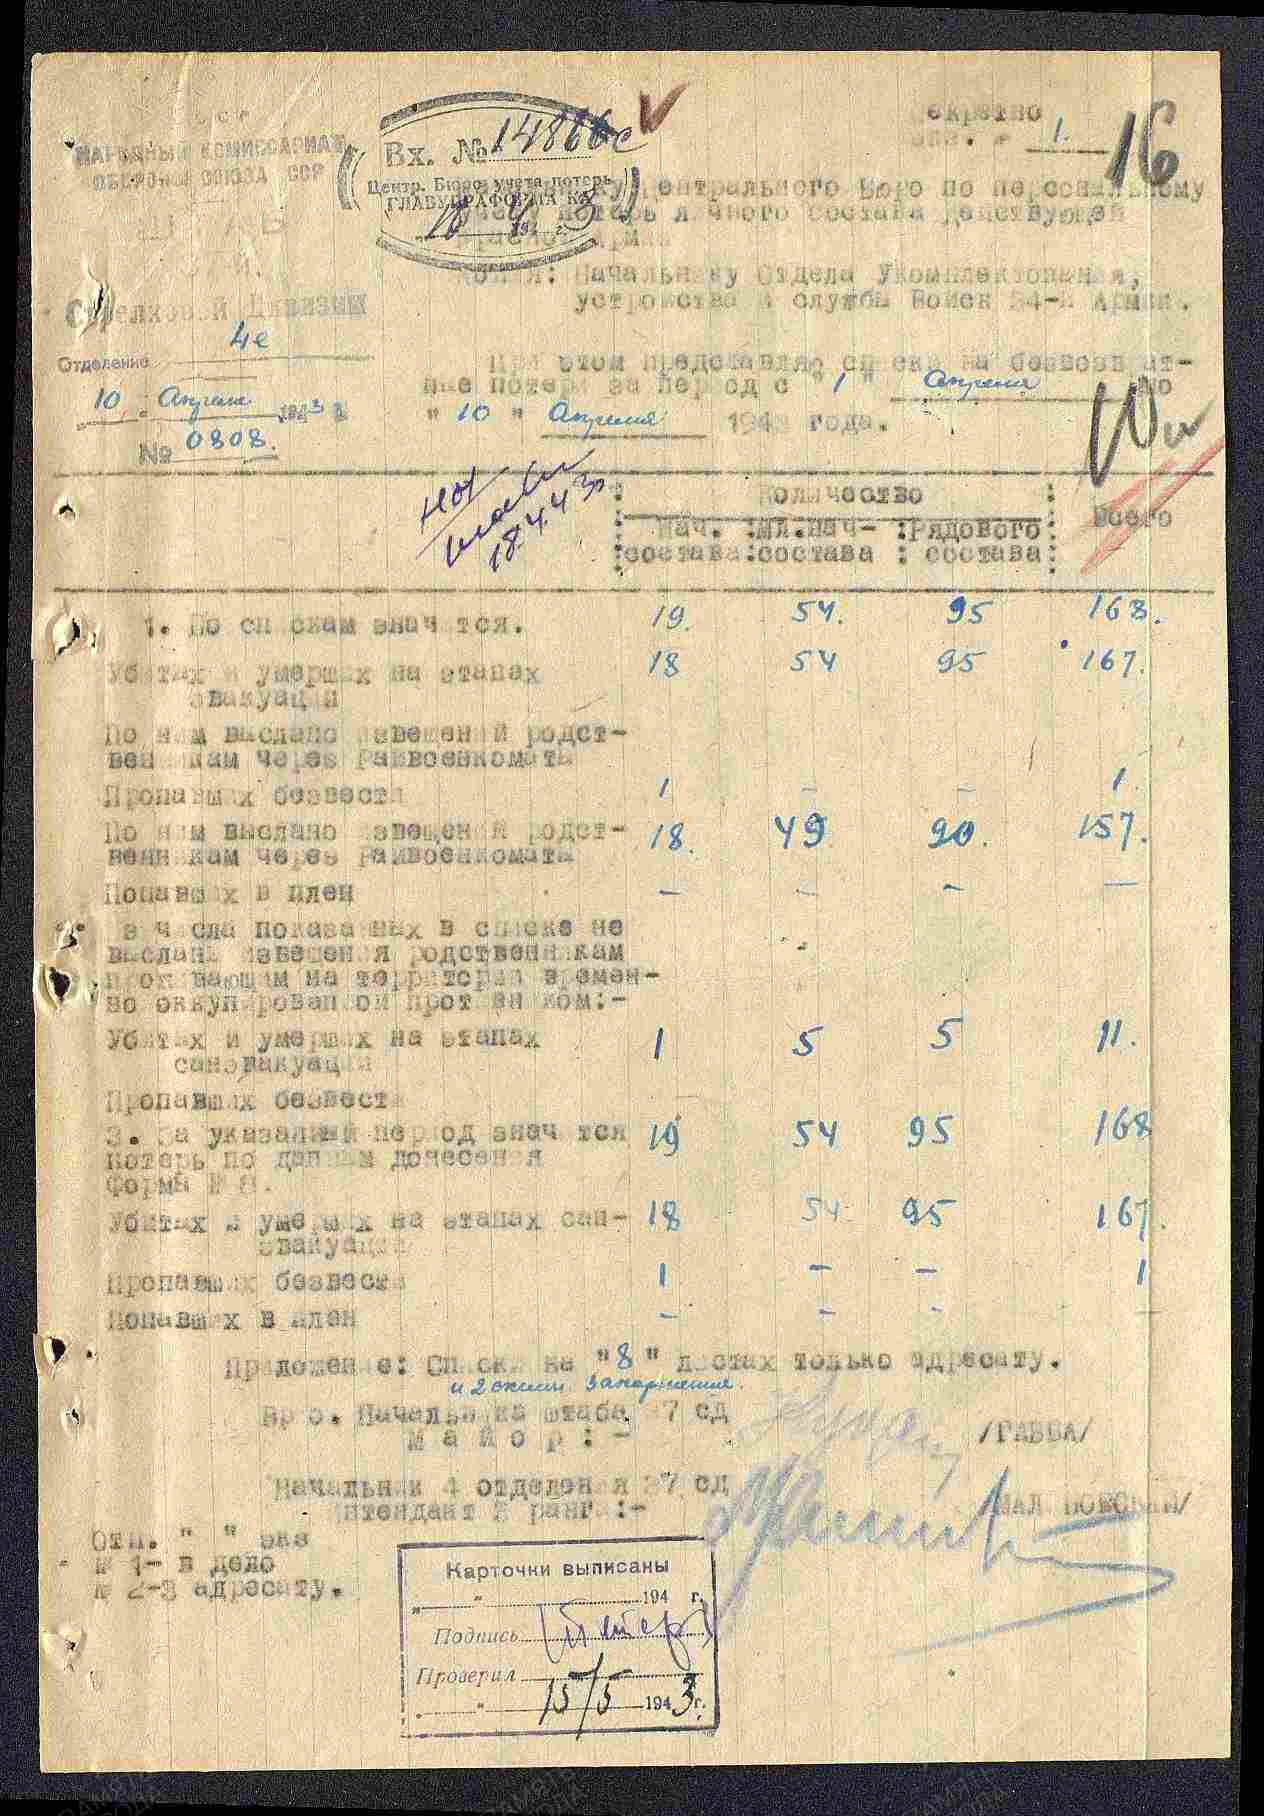 ССР
НАРОДНЫЙ КОМИССАРИАТ
ОБОРОНЫ СОЮЗА ССР
ШТАБ
Стрелковой Дивизии
Отделение 4е
10 " Апреля 1943 г
№ 0808.
Вх. № 14866с
Центр. Бюро учета потерь
ГЛАВУПРАФОРМА КА
10 4 194 3 г.
екретно
экз. № 1.
16
Центрального Бюро по персональному
учету потерь личного состава действующей
Красной Армии
Копия: Начальнику Отдела Укомплектования,
устройства и службы Войск 34-й Армии.
При этом представляю списки на безвозврат-
ные потери за период с " 1 " Апреля по
" 10 " Апреля 1943 года.
18.4.43
Количество
Нач. состава : Мл.нач- состава : Рядового состава
Всего
1. По спискам значится. 19. 54. 95 168.
Убитых и умерших на этапах 18 54 95 167.
эвакуации
По ним выслано извещений родст-
венникам через Райвоенкоматы
Пропавших безвести 1 - - 1.
По ним выслано извещений родст- 18. 49 90. 157.
венникам через Райвоенкоматы
Попавших в плен — - - —
з числа показанных в списке не
высланы извещения родственникам
проживающим на территории времен-
но оккупированной противником:-
Убитых и умерших на этапах 1 5 5 11.
санэвакуации
Пропавших безвести
3. За указанный период значится 19 54 95 168
потерь по данным донесения
форма № 8.
Убитых и умерших на этапах сан- 18 54 95 167.
эвакуации
Пропавших безвести 1 - - 1
Попавших в плен - - - —
Приложение: Списки на "8" листах только адресату.
Врио. Начальника штаба 37 сд
майор:- /ГАББА/
Начальник 4 отделения 37 сд
Интендант 3 ранга:-
Отп. " " экз
№ 1- в дело
№ 2-3 адресату.
Карточки выписаны
" " 194 г.
Подпись
Проверил
" 15/5 1943 г.